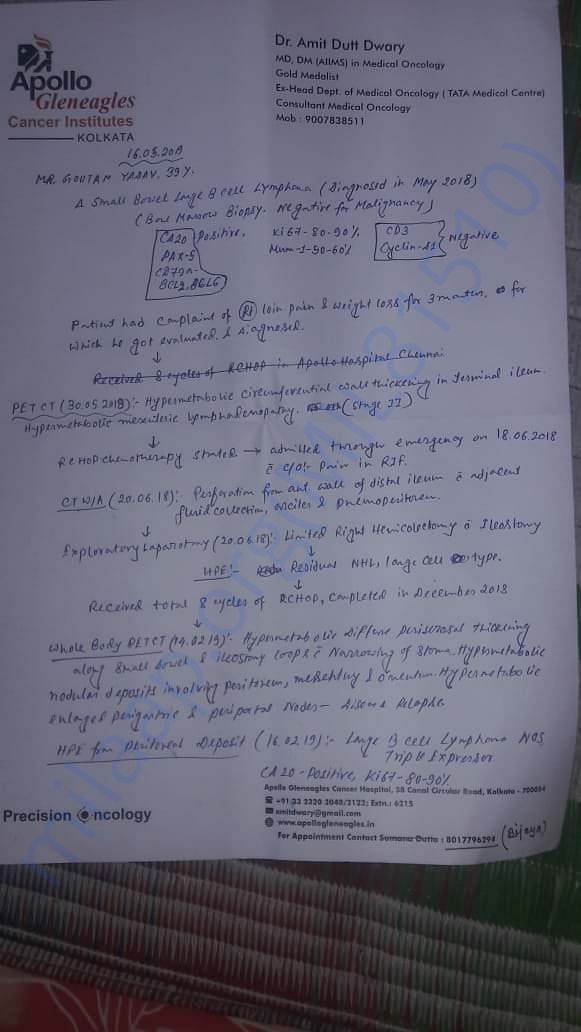 Apollo
Gleneagles
Cancer Institutes
KOLKATA
Dr. Amit Dutt Dwary
MD, DM (AIIMS) in Medical Oncology
Gold Medalist
Ex-Head Dept. of Medical Oncology ( TATA Medical Centre)
Consultant Medical Oncology
Mob : 9007838511
16.05.2019
MR GOUTAM YADAV. 39 Y.
Δ Small Bowel Large B cell Lymphoma (Diagnosed in May 2018)
(Bone Marrow Biopsy. Negative for Malignancy)
CD20 Positive, Ki67-80-90% CD3 Negative
PAX-5 Mum-1-50-60%
CD79a-
BCL2, BCL6
Patient had complaint of Rt loin pain & weight loss for 3 months, for
which he got evaluated & diagnosed.
↓
Received 8 cycles of RCHOP in Apollo Hospital Chennai
PET CT (30.05.2018):- Hypermetabolic circumferential wall thickening in terminal ileum.
Hypermetabolic mesenteric lymphadenopathy. (Stage II)
↓
RCHOP chemotherapy started → admitted through emergency on 18.06.2018
c̄ C/O:- Pain in RIF.
CT W/A (20.06.18):- Perforation from ant. wall of distal ileum c̄ adjacent
fluid collection, ascites & pneumoperitoneum.
↓
Exploratory Laparotomy (20.06.18):- Limited Right Hemicolectomy c̄ Ileostomy
↓
HPE:- Residual NHL, large cell type.
↓
Received total 8 cycles of RCHOP, completed in December 2018
↓
Whole Body PETCT (14.02.19):- Hypermetabolic Diffuse periserosal thickening
along small bowel & ileostomy loop & c̄ Narrowing of stoma. Hypermetabolic
nodular deposits involving peritoneum, mesentery & omentum. Hypermetabolic
enlarged perigastric & periportal nodes - Disease Relapse
HPE from peritoneal Deposit (16.02.19):- Large B cell Lymphoma NOS,
Triple Expressor
CD20 - Positive, Ki67-80-90%
Apollo Gleneagles Cancer Hospital, 58 Canal Circular Road, Kolkata - 700054
+91 33 2320 3040/2122; Extn.: 6215
amitdwary@gmail.com
www.apollogleneagles.in
For Appointment Contact Sumana Dutta : 8017796294 (Bijaya)
Precision Oncology
milaap.org